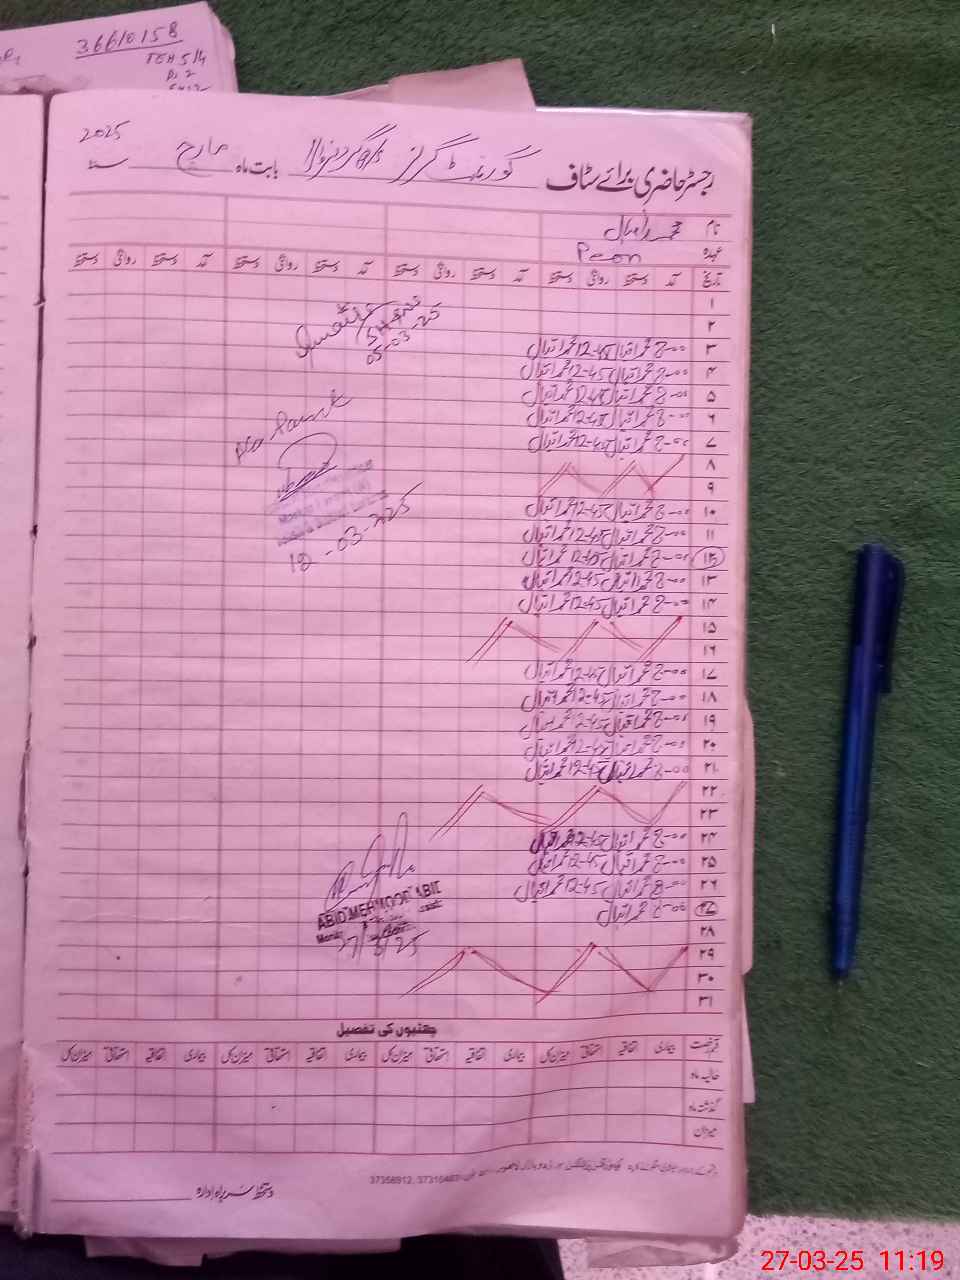 36610158
TEH 5/4
2025
رجسٹر حاضری برائے سٹاف گورنمنٹ گرلز بابت ماہ مارچ سنہ
نام محمد اقبال
عہدہ Peon
تاریخ آمد دستخط روانگی دستخط آمد دستخط روانگی دستخط آمد دستخط روانگی دستخط آمد دستخط روانگی دستخط
۱
۲
۳ 8-00 محمد اقبال 12-45 محمد اقبال
۴ 8-00 محمد اقبال 12-45 محمد اقبال
05-03-25
۵ 8-00 محمد اقبال 12-45 محمد اقبال
۶ 8-00 محمد اقبال 12-45 محمد اقبال
۷ 8-00 محمد اقبال 12-45 محمد اقبال
۸
۹
۱۰ 8-00 محمد اقبال 12-45 محمد اقبال
۱۱ 8-00 محمد اقبال 12-45 محمد اقبال
۱۲ 8-00 محمد اقبال 12-45 محمد اقبال
12-03-2025
۱۳ 8-00 محمد اقبال 12-45 محمد اقبال
۱۴ 8-00 محمد اقبال 12-45 محمد اقبال
۱۵
۱۶
۱۷ 8-00 محمد اقبال 12-45 محمد اقبال
۱۸ 8-00 محمد اقبال 12-45 محمد اقبال
۱۹ 8-00 محمد اقبال 12-45 محمد اقبال
۲۰ 8-00 محمد اقبال 12-45 محمد اقبال
۲۱ 8-00 محمد اقبال 12-45 محمد اقبال
۲۲
۲۳
۲۴ 8-00 محمد اقبال 12-45 محمد اقبال
۲۵ 8-00 محمد اقبال 12-45 محمد اقبال
۲۶ 8-00 محمد اقبال 12-45 محمد اقبال
ABID MEHMOOD ABID
۲۷ 8-00 محمد اقبال
27/3/25
۲۸
۲۹
۳۰
۳۱
چھٹیوں کی تفصیل
قسم رخصت بیماری اتفاقیہ استحقاقی میزان کل بیماری اتفاقیہ استحقاقی میزان کل بیماری اتفاقیہ استحقاقی میزان کل بیماری اتفاقیہ استحقاقی میزان کل
حالیہ ماہ
گذشتہ ماہ
میزان
دستخط سربراہ ادارہ
27-03-25 11:19